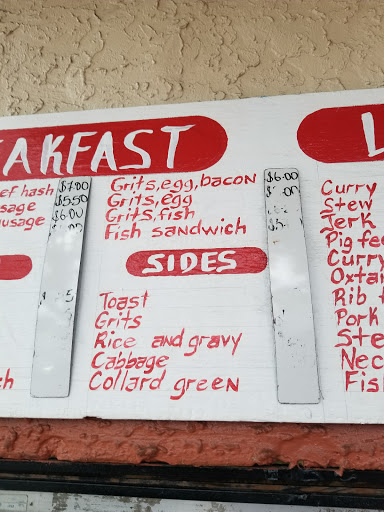 AKFAST
ef hash $7.00
sage $5.50
usage $6.00
Grits,egg,bacon $6.00
Grits,egg
Grits,fish
Fish sandwich
SIDES
Toast
Grits
Rice and gravy
Cabbage
Collard green
Curry
Stew
Jerk
Pig fee
Curry
Oxta
Rib
Pork
Ste
Nec
Fis